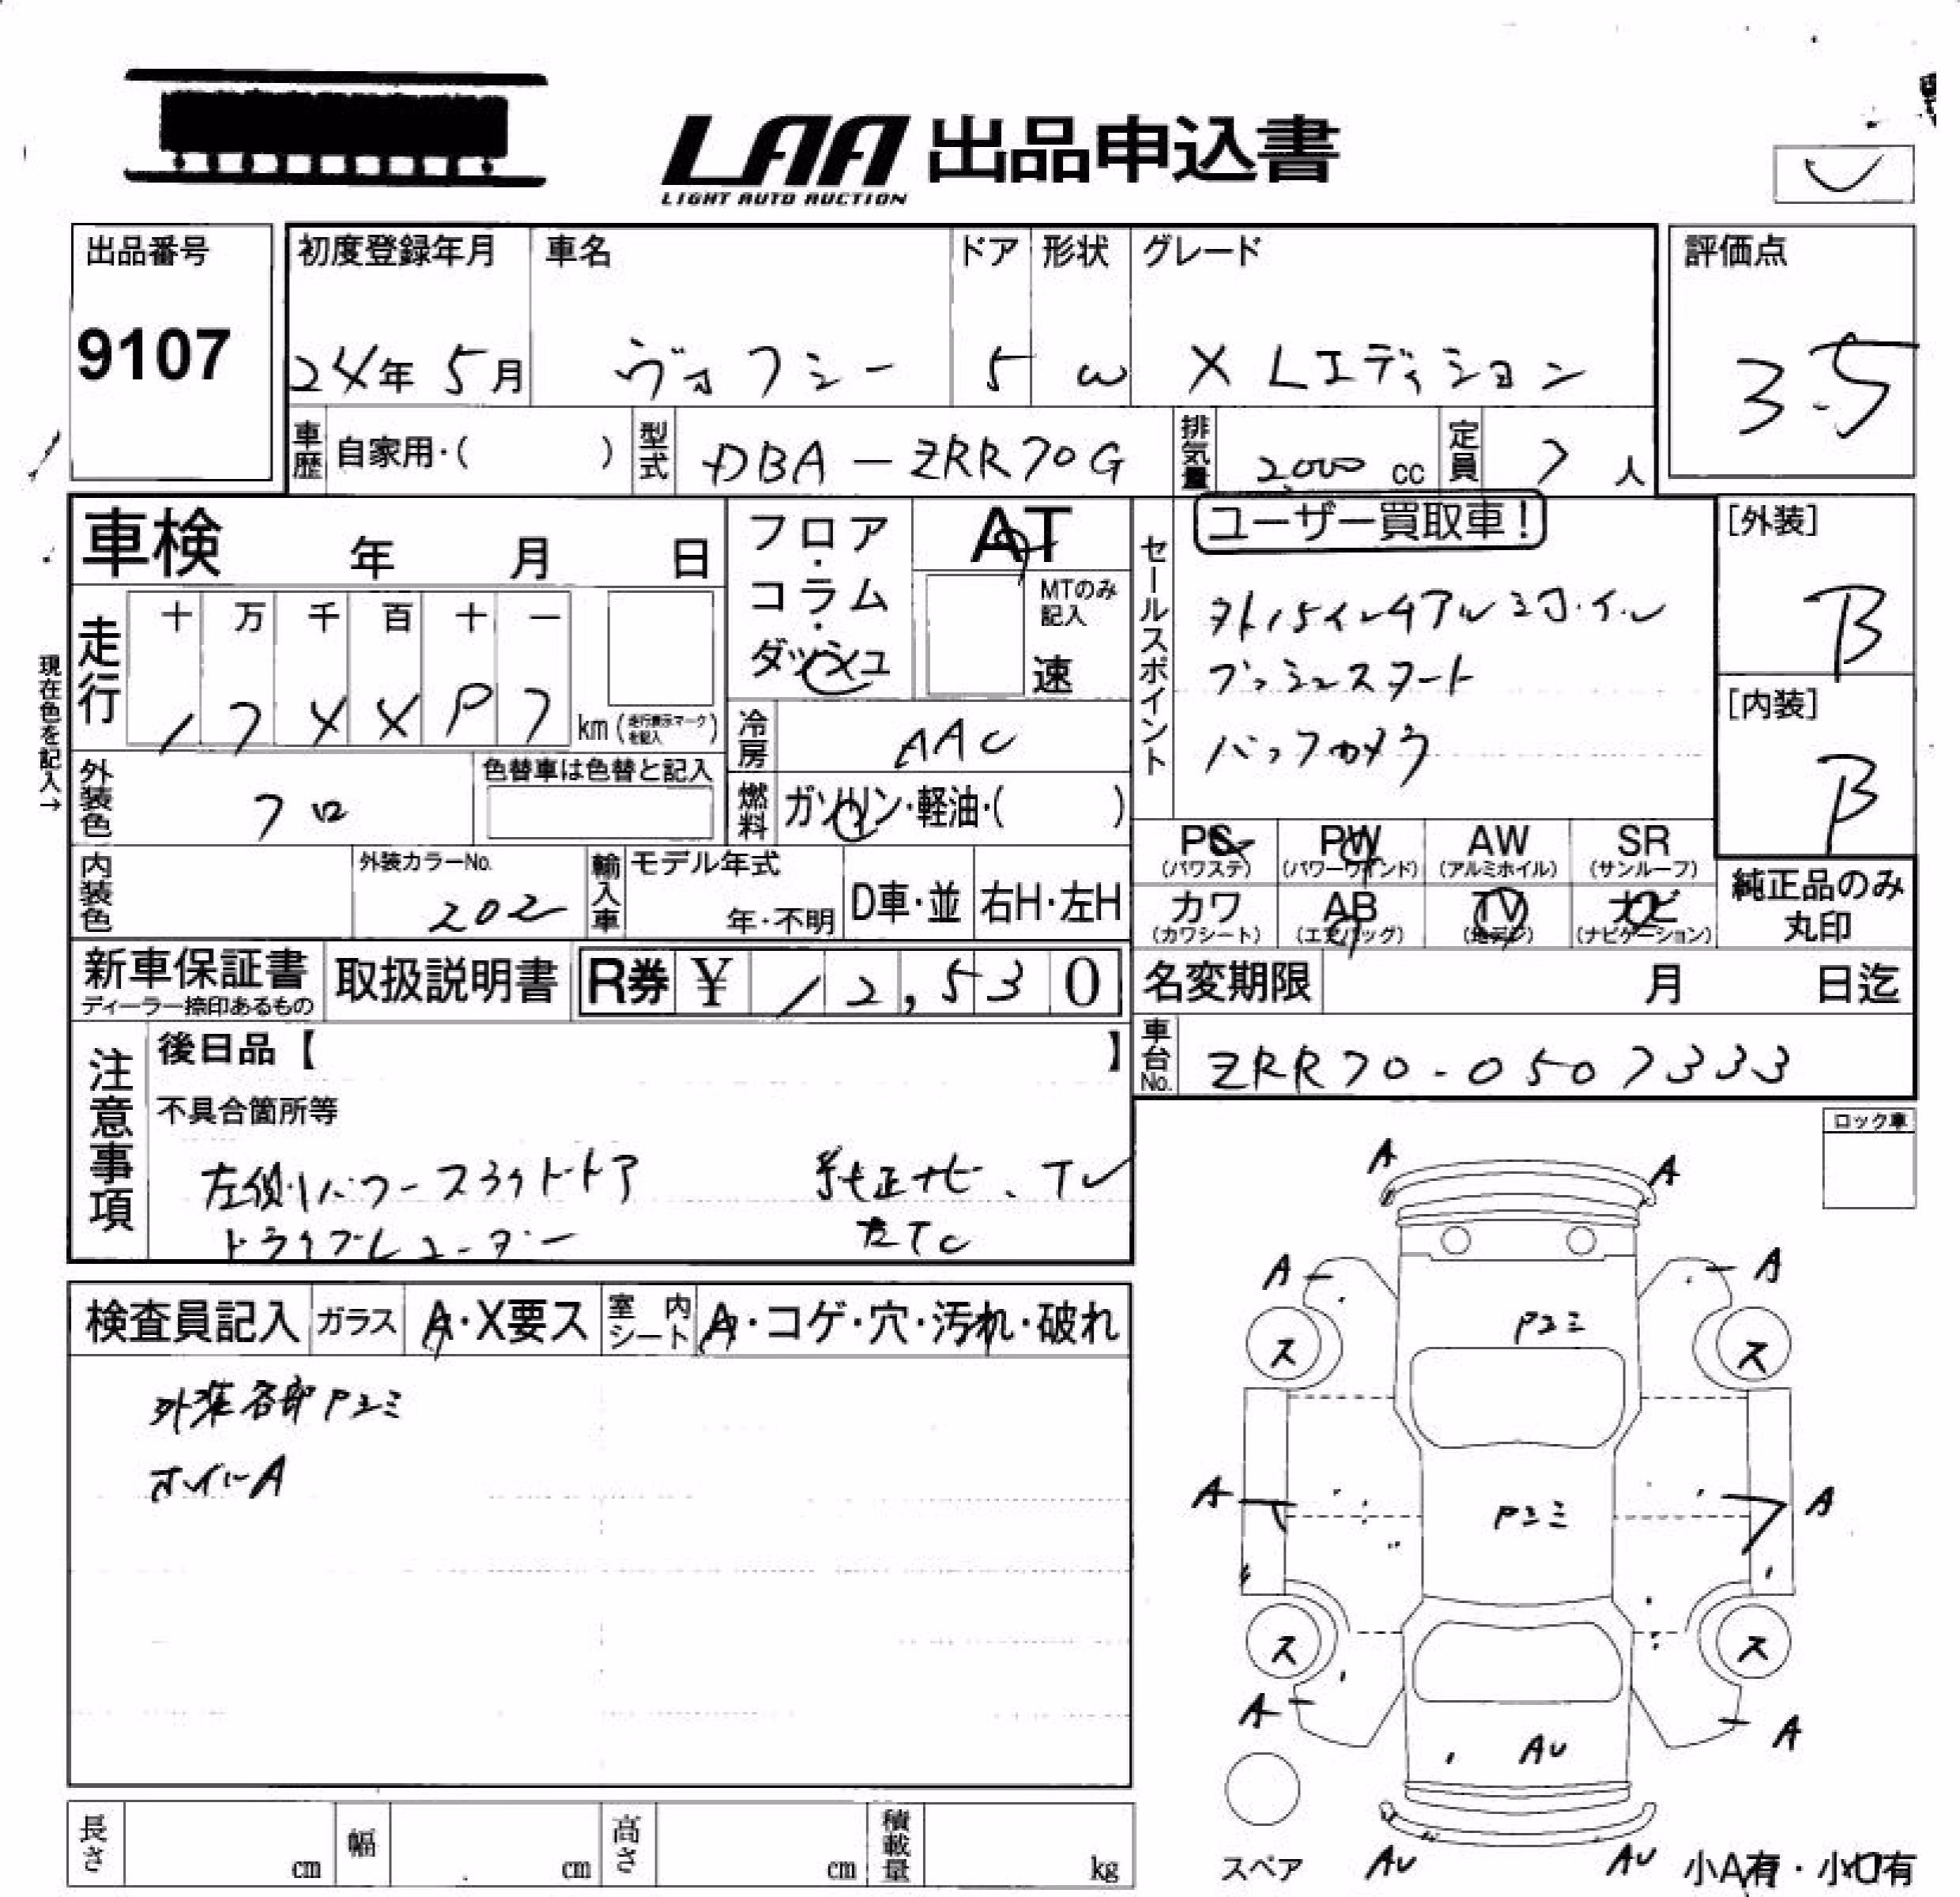 LAA 出品申込書
LIGHT AUTO AUCTION
出品番号
9107
初度登録年月
24年 5月
車名
ヴォクシー
ドア
5
形状
W
グレード
X Lエディション
評価点
3.5
車歴 自家用・( )
型式 DBA-ZRR70G
排気量 2000 cc
定員 7 人
車検 年 月 日
フロア・コラム・ダッシュ
AT
MTのみ記入
速
セールスポイント
ユーザー買取車!
プッシュスタート
バックカメラ
[外装]
B
[内装]
B
現在色を記入→
走行
十 万 千 百 十 一
km (走行表示マークを記入)
冷房 AAC
外装色 クロ
色替車は色替と記入
燃料 ガソリン・軽油・( )
内装色
外装カラーNo.
202
輸入車
モデル年式
年・不明
D車・並
右H・左H
PS (パワステ)
PW (パワーウインド)
AW (アルミホイル)
SR (サンルーフ)
カワ (カワシート)
AB (エアバッグ)
TV (地デジ)
ナビ (ナビゲーション)
純正品のみ丸印
新車保証書
ディーラー捺印あるもの
取扱説明書
R券 ¥ 12,530
名変期限 月 日迄
車台No. ZRR70-0507333
注意事項
後日品【 】
不具合箇所等
左側パワースライドドア 純正ナビ、TV
ドライブレコーダー ETC
ロック車
検査員記入
ガラス A・X要ス
室内シート A・コゲ・穴・汚れ・破れ
外装各部Pヨミ
ホイルA
A A
A A
Pヨミ
ス ス
A A
Pヨミ
ス ス
A A
AU
AU AU
スペア
小A有・小U有
長さ cm
幅 cm
高さ cm
積載量 kg